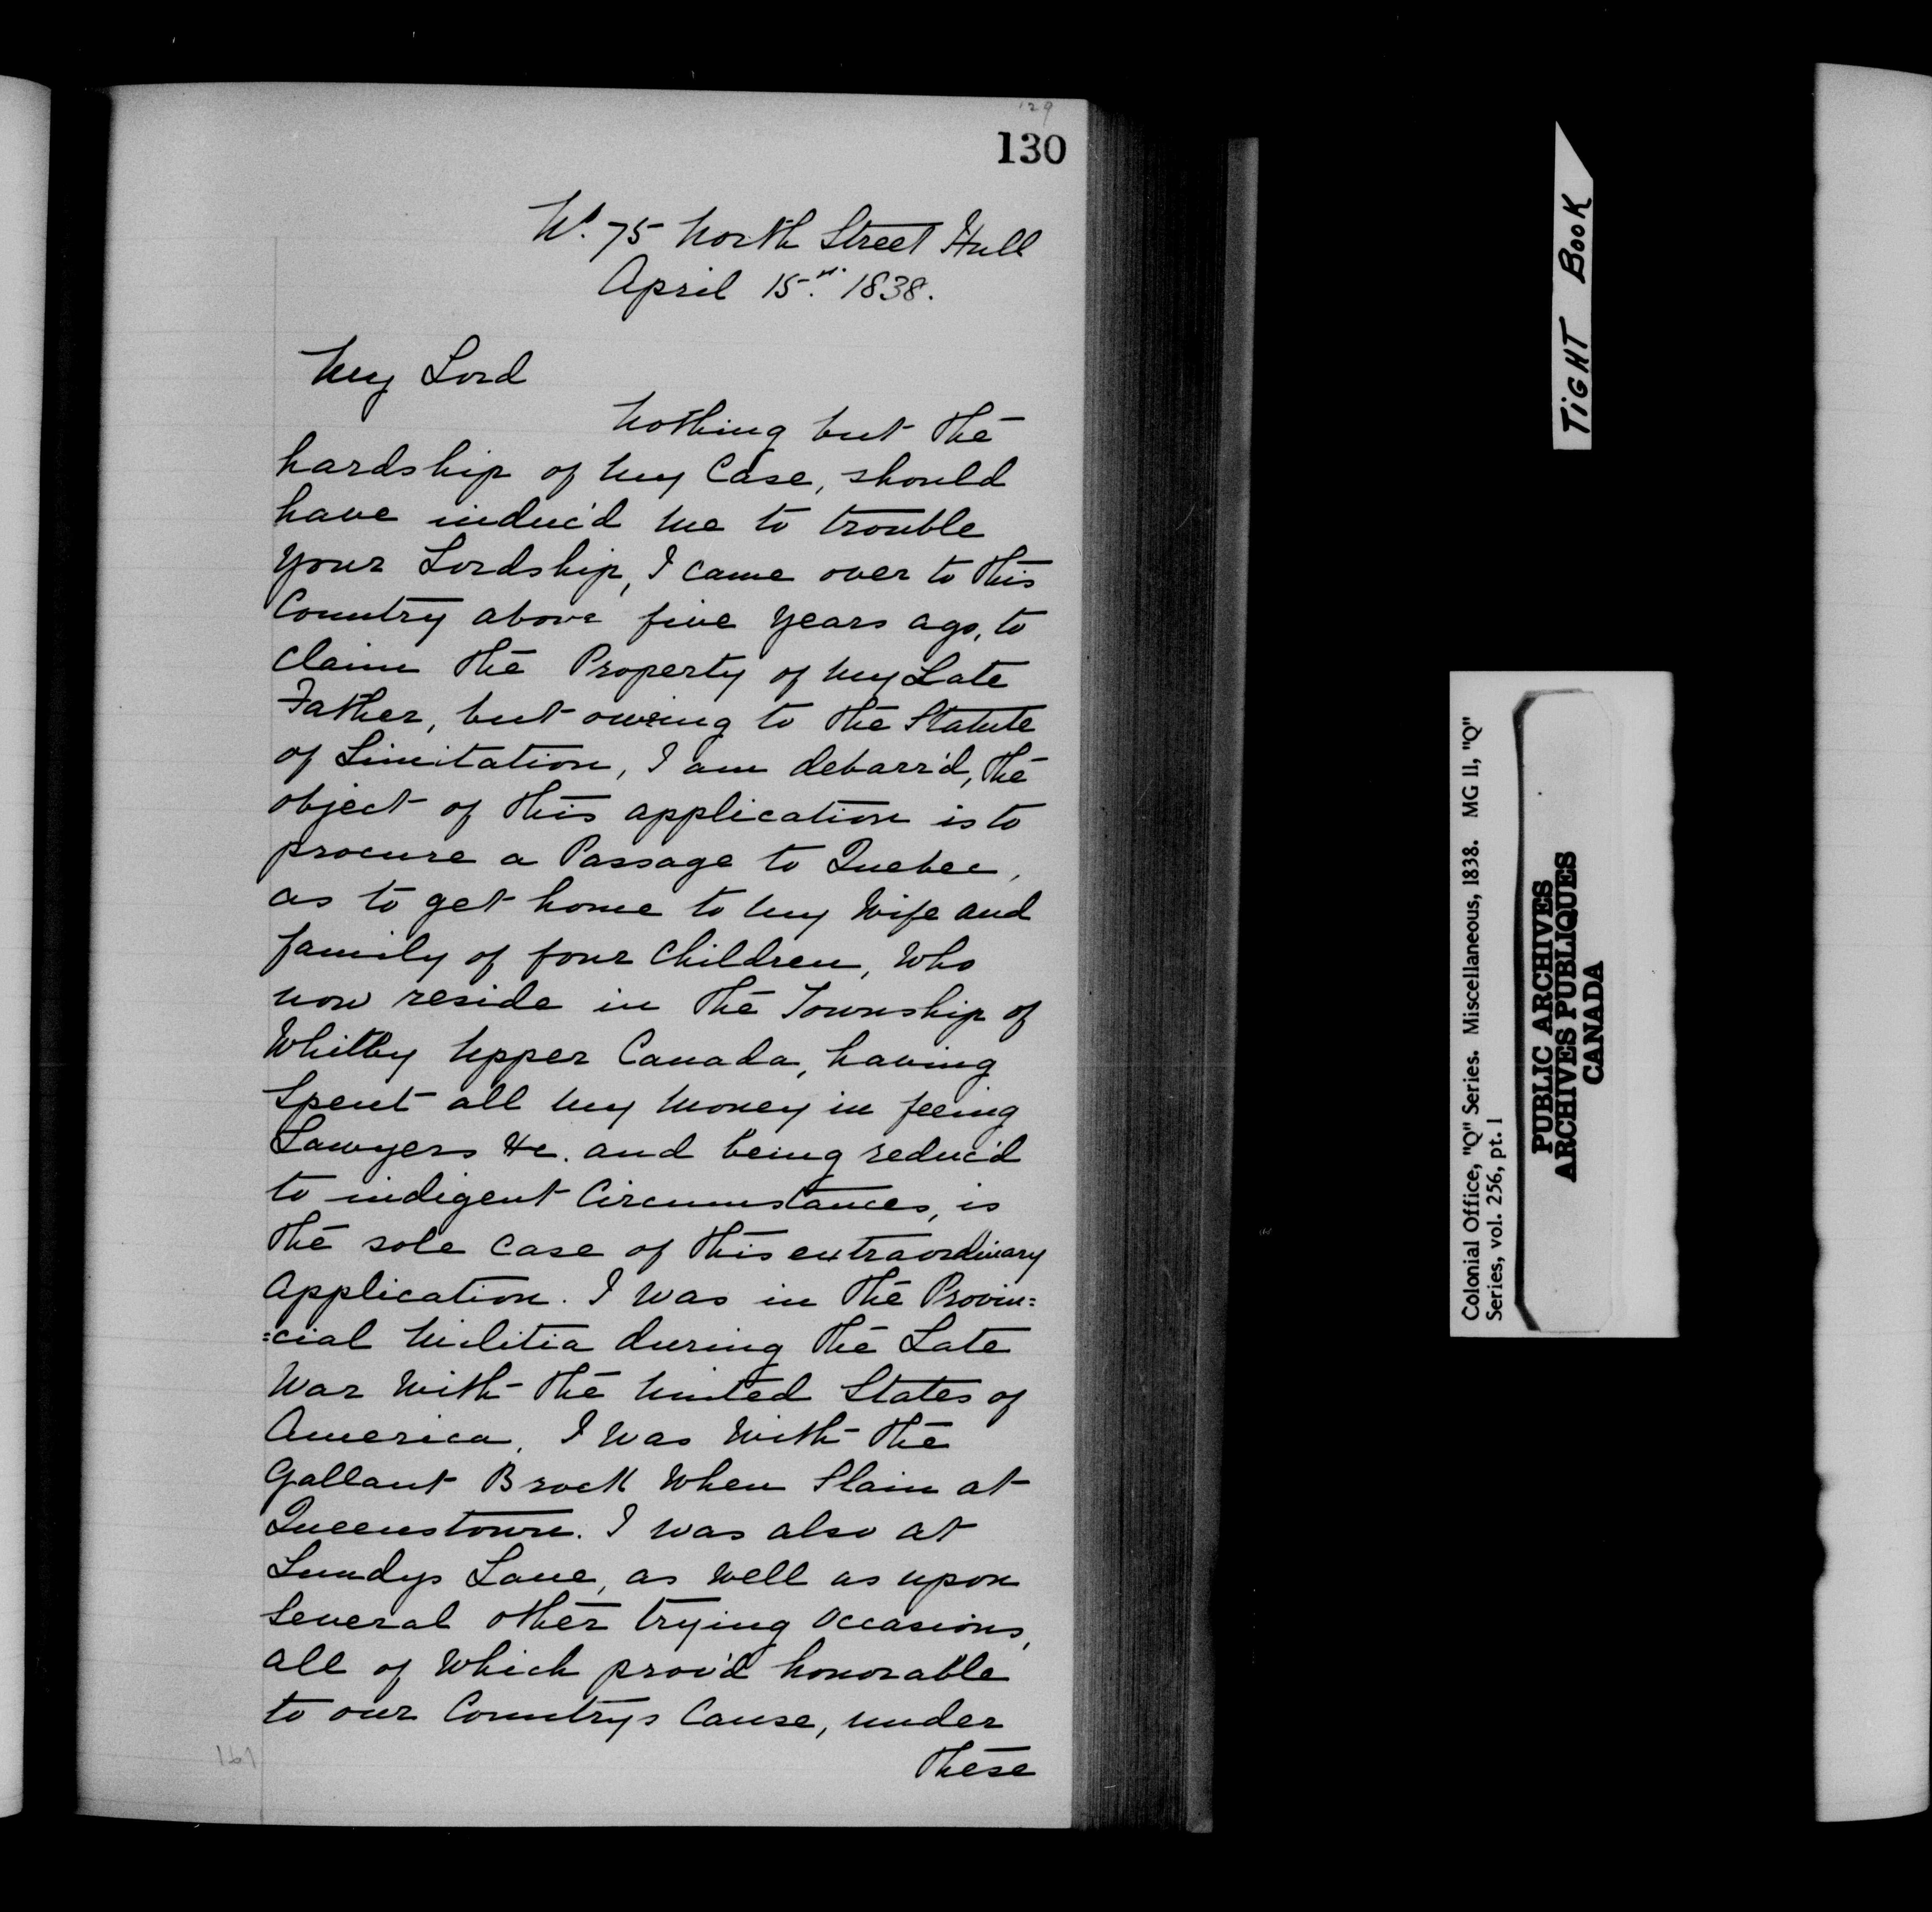 129
130
No. 75 North Street Hull
April 15th. 1838.
My Lord
Nothing but the
hardship of my Case, should
have induc'd me to trouble
your Lordship, I came over to this
Country above five years ago, to
claim the Property of my Late
Father, but owing to the Statute
of Limitation, I am debarr'd, the
object of this application is to
procure a Passage to Quebec,
as to get home to my Wife and
family of four children, Who
now reside in the Township of
Whitby Upper Canada, having
Spent all my Money in feeing
Lawyers &c. and being reduc'd
to indigent Circumstances, is
the sole case of this extraordinary
Application. I was in the Provin=
=cial Militia during the Late
War With the United States of
America, I Was With the
Gallant Brock When Slain at
Queenstown. I was also at
Lundys Lane, as Well as upon
Several other trying Occasions,
all of Which prov'd honorable
to our Countrys Cause, under
these
161
TIGHT BOOK
Colonial Office, "Q" Series. Miscellaneous, 1838. MG 11, "Q"
Series, vol. 256, pt. 1
PUBLIC ARCHIVES
ARCHIVES PUBLIQUES
CANADA